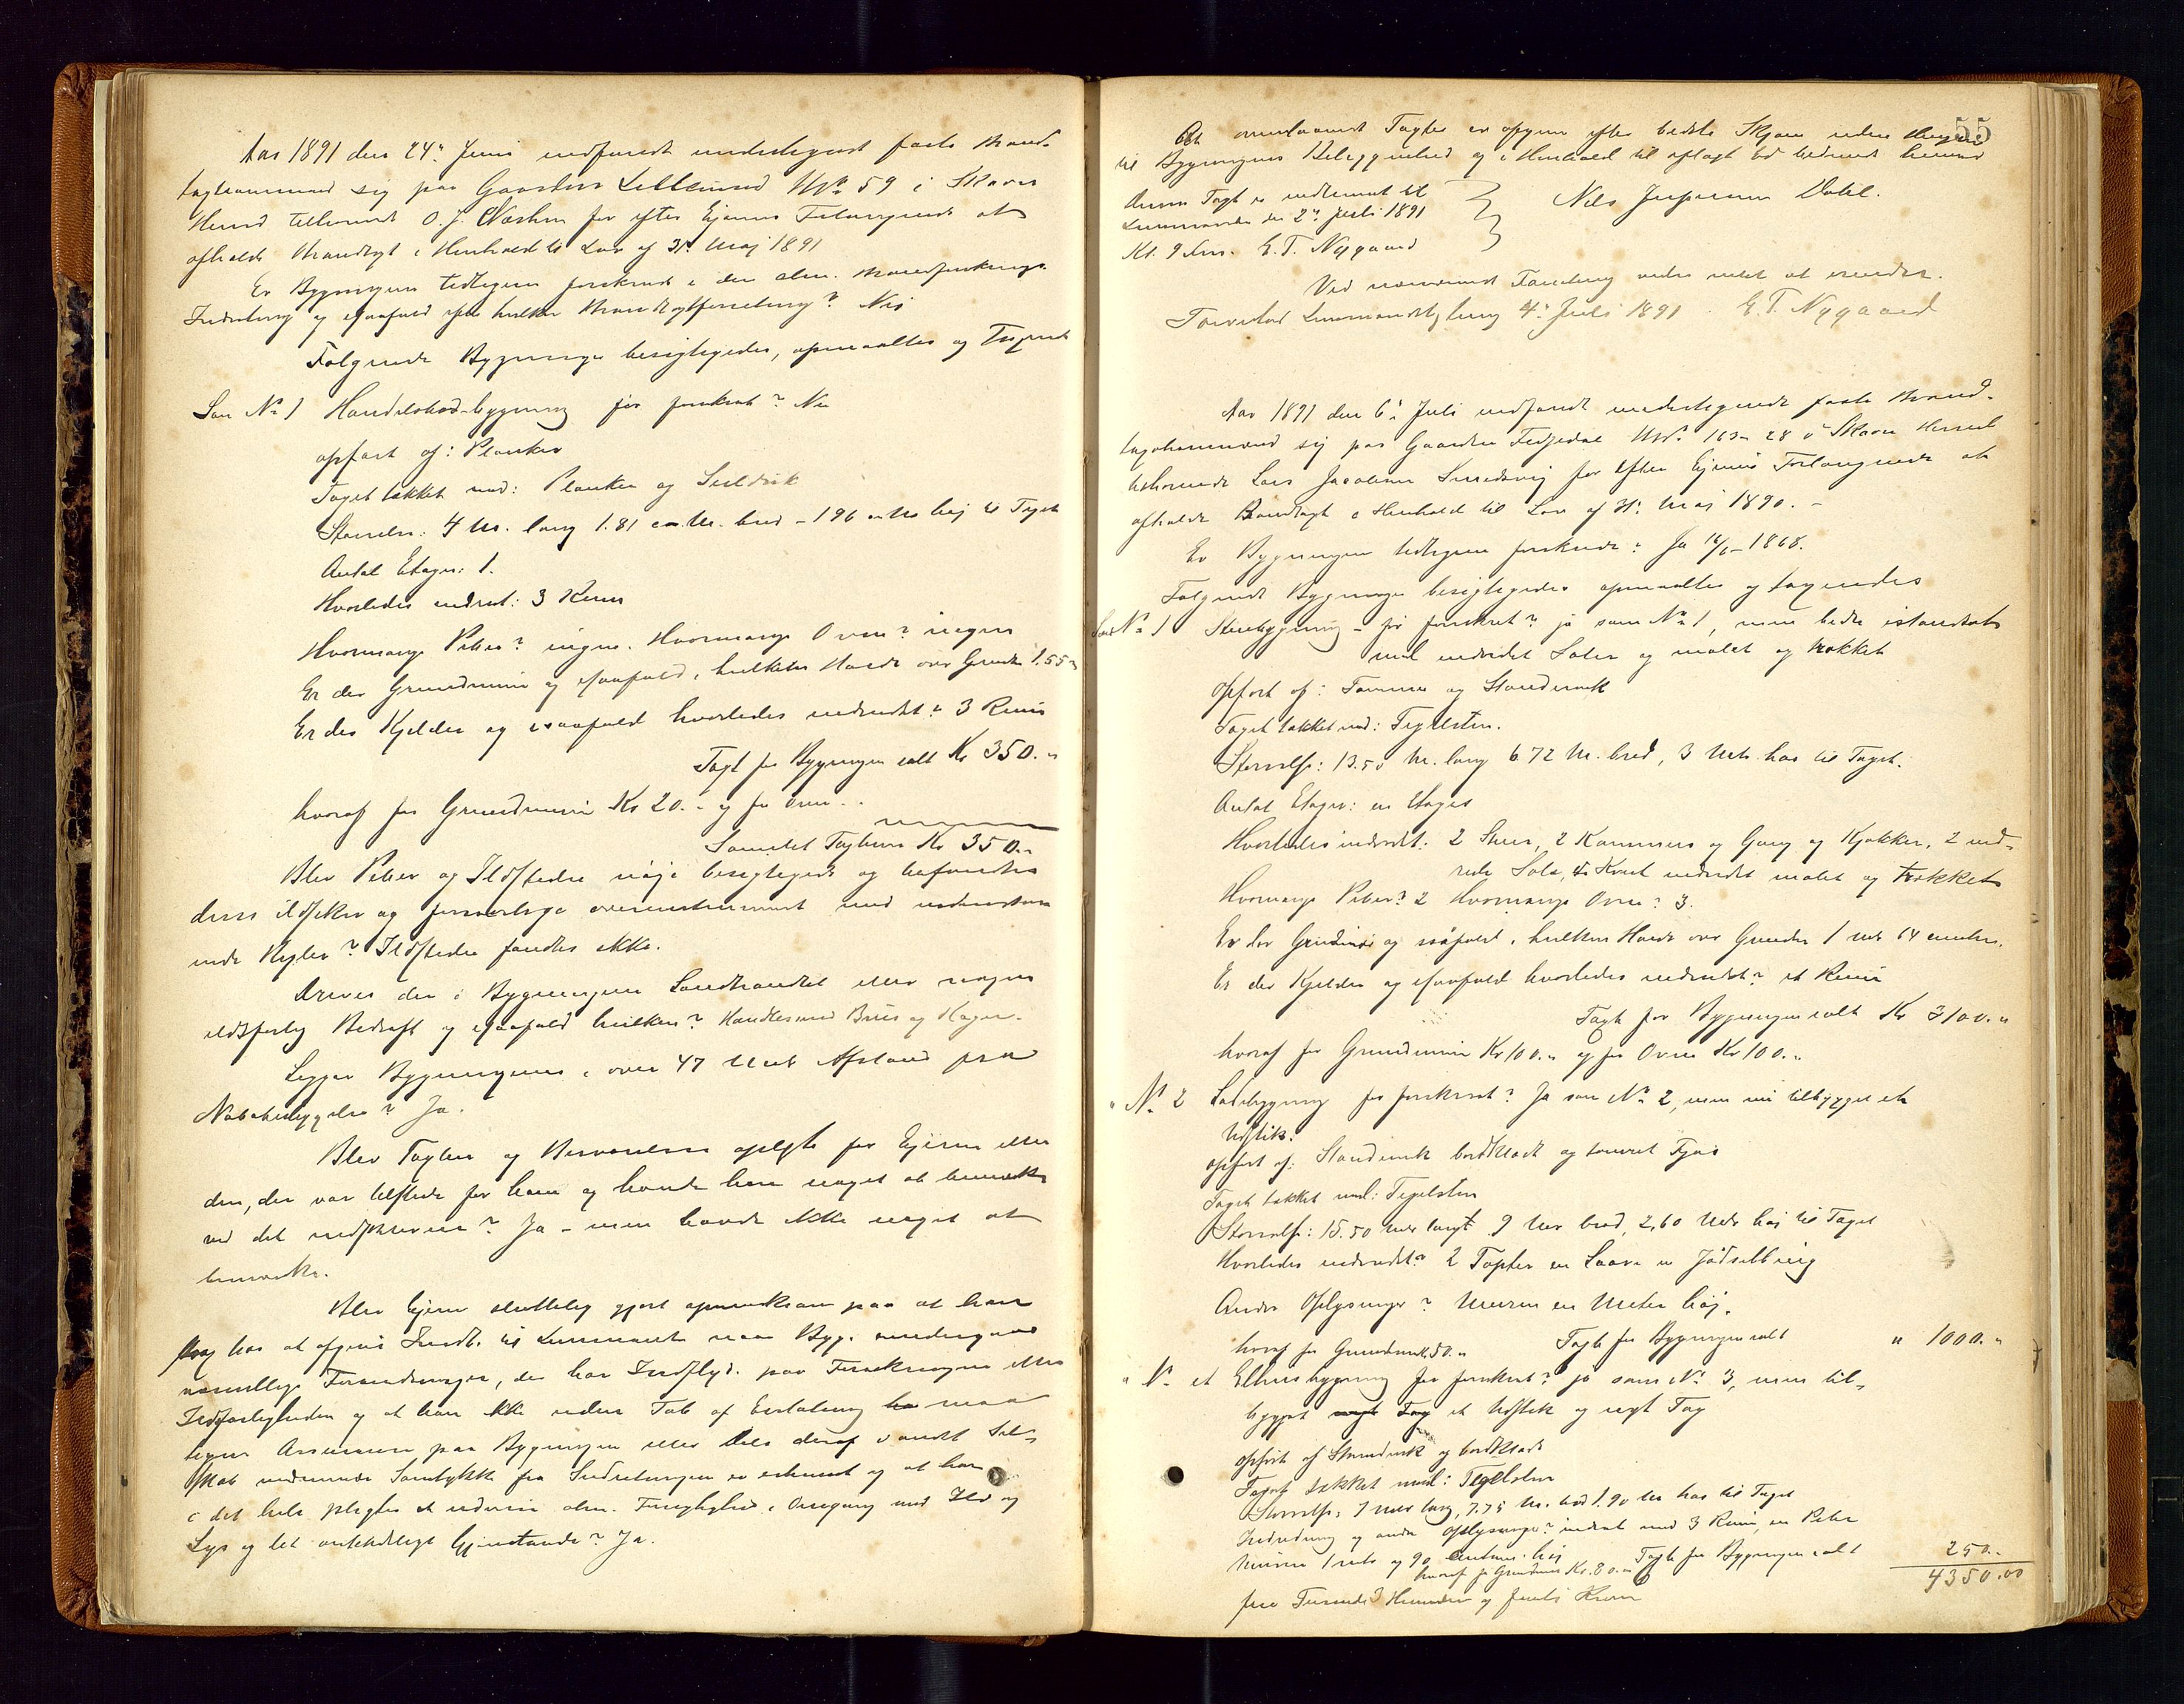 Aar 1891 den 24de Juni indfandt undertegnede faste Brand-
taxtmænd sig paa Gaarden Lillesund No. 59 i Skaare
Herred tilhørende O. J. Næshem for efter Ejerens Forlangende at
afholde Brandtaxt i Henhold til Lov af 31te Maj 1891
Er Bygningen tidligere forsikret i den alm. Brandforsikrings-
Indretning og isaafald efter hvilken Brandtaxtforretning? Nei
Følgende Bygninger besigtigedes, opmaaltes og Taxertes
Som No 1 Handelsbod-bygning før forsikret? Nei
opført af: Planker
Taget tækket med: Planker og Seildug
Størrelse: 4 M. lang 1.81 cm. M. bred - 196 cm høj til Taget
Antal Etager: 1.
Hvorledes indredet: 3 Rum
Hvormange Piber? ingen. Hvormange Ovne? ingen
Er der Grundmur og isaafald, hvilken Høide over Grunden 1.55 m
Er der Kjelder og isaafald hvorledes indredet? 3 Rum
Taxt for Bygningen ialt Kr 350.-
hvoraf for Grundmuren Kr 20.- og for Ovne -.
Samlet Taxtsum Kr 350.-
Blev Piber og Ildsteder nøje besigtigede og befandtes
disse ildsikre og forsvarlige overensstemmende med
Regler? Ildsteder fandtes ikke.
Drives der i Bygningerne Landhandel eller nogen
ildsfarlig Bedrift og isaafald hvilken? Handles med Brus og Kager.
Ligger Bygningerne i over 47 Met Afstand fra
Nabobebyggelse? Ja.
Blev Taxten og Beskrivelsen oplæst for Ejeren eller
den, der var tilstede for ham og havde han noget at bemærke
ved det nedskrevne? Ja - men havde ikke noget at
bemærke.
Blev Ejeren sluttelig gjort opmærksom paa at han
har at afgive Indb. til Lensmanden naar Byg. undergaar
væsentlige Forandringer, der har Indflyd. paa Forsikringen eller
Ildsfarligheden og at han ikke uden Tab af Erstatning maa
tegne Assurance paa Bygningen eller Dele deraf i andet Sel-
skab medmindre Samtykke fra Indretningen er erhvervet og at han
i det hele pligter at udvise alm. Forsigtighed i Omgang med Ild og
Lys og let antændelige Gjenstande? Ja.
55
At ovennævnte Taxter er afgivne efter bedste Skjøn uden Hensyn
til Bygningens Beliggenhed og i Henhold til aflagt Ed bevidnes herved
Denne Taxt er indleveret til
Lensmanden den 2de Juli 1891
Kl. 9 Form. E. T. Nygaard
Nils Jespersen Dahl.
Ved nærværende Forretning vides intet at erindre.
Torvestad Lensmandsbestilling 4de Juli 1891. E. T. Nygaard
Aar 1891 den 6te Juli indfandt undertegnede faste Brand-
taxtmænd sig paa Gaarden Fedjedal No. 163- 28 i Skaare Herred
tilhørende Lars Jacobsen Smedsvig for efter Ejerens Forlangende at
afholde Brandtaxt i Henhold til Lov af 31te Maj 1890. -
Er Bygningen tidligere forsikrede? Ja 16/6 - 1868.
Følgende Bygninger besigtigedes opmaaltes og taxeredes
Som No 1 Stuebygning - før forsikret? ja som No 1, men bedre istandsat
med indredet Saler og malet og trækket
Opført af: Tømmer og Standerværk
Taget tækket med: Tegelsten.
Størrelse: 13.50 M. lang 6.72 M. bred, 3 Metr. høi til Taget.
Antal Etager: en Etages
Hvorledes indredet: 2 Stuer, 2 Kammers og Gang og Kjøkken, 2 ind-
rede Sale, 4 Kvist indredet malet og trækket
Hvormange Piber? 2 Hvormange Ovne? 3.
Er der Grundmur og isåfald, hvilken Høide over Grunden 1 met 64 cmetre.
Er der Kjelder og isaafald hvorledes indredet? et Rum
Taxt for Bygningen ialt Kr 3100.-
hvoraf for Grundmuren Kr 100.- og for Ovne Kr 100.-
" No 2 Ladebygning før forsikret? Ja som No 2, men nu tilbygget et
Udstik.
Opført af: Standerværk bordklædt og tømret Fjøs
Taget tækket med: Tegelsten
Størrelse: 15.50 Meter langt 9 Met bred, 2,60 Metr høi til Taget
Hvorledes indredet? 2 Tofter en Laave
Andre Oplysninger? Muren en Meter høj.
hvoraf for Grundmur 50.- Taxt for Bygningen ialt " 1000.-
" No. et Eldhusbygning før forsikret? ja som No 3, men til-
bygget et Udstik og nyt Tag
Opført af Standerværk og bordklædt
Taget tækket med: Tegelsten
Størrelse: 7 Meter lang, 7.75 M. bred 1.90 M. høi til Taget
Indredning og andre Oplysninger? indredet med 3 Rum, en Pibe
Muren 1 met og 90 Centim. høi
hvoraf for Grundmur Kr. 80.- Taxt for Bygningen ialt 250.-
4350.00
fire Tusinde 3 Hundrede og femti Kroner